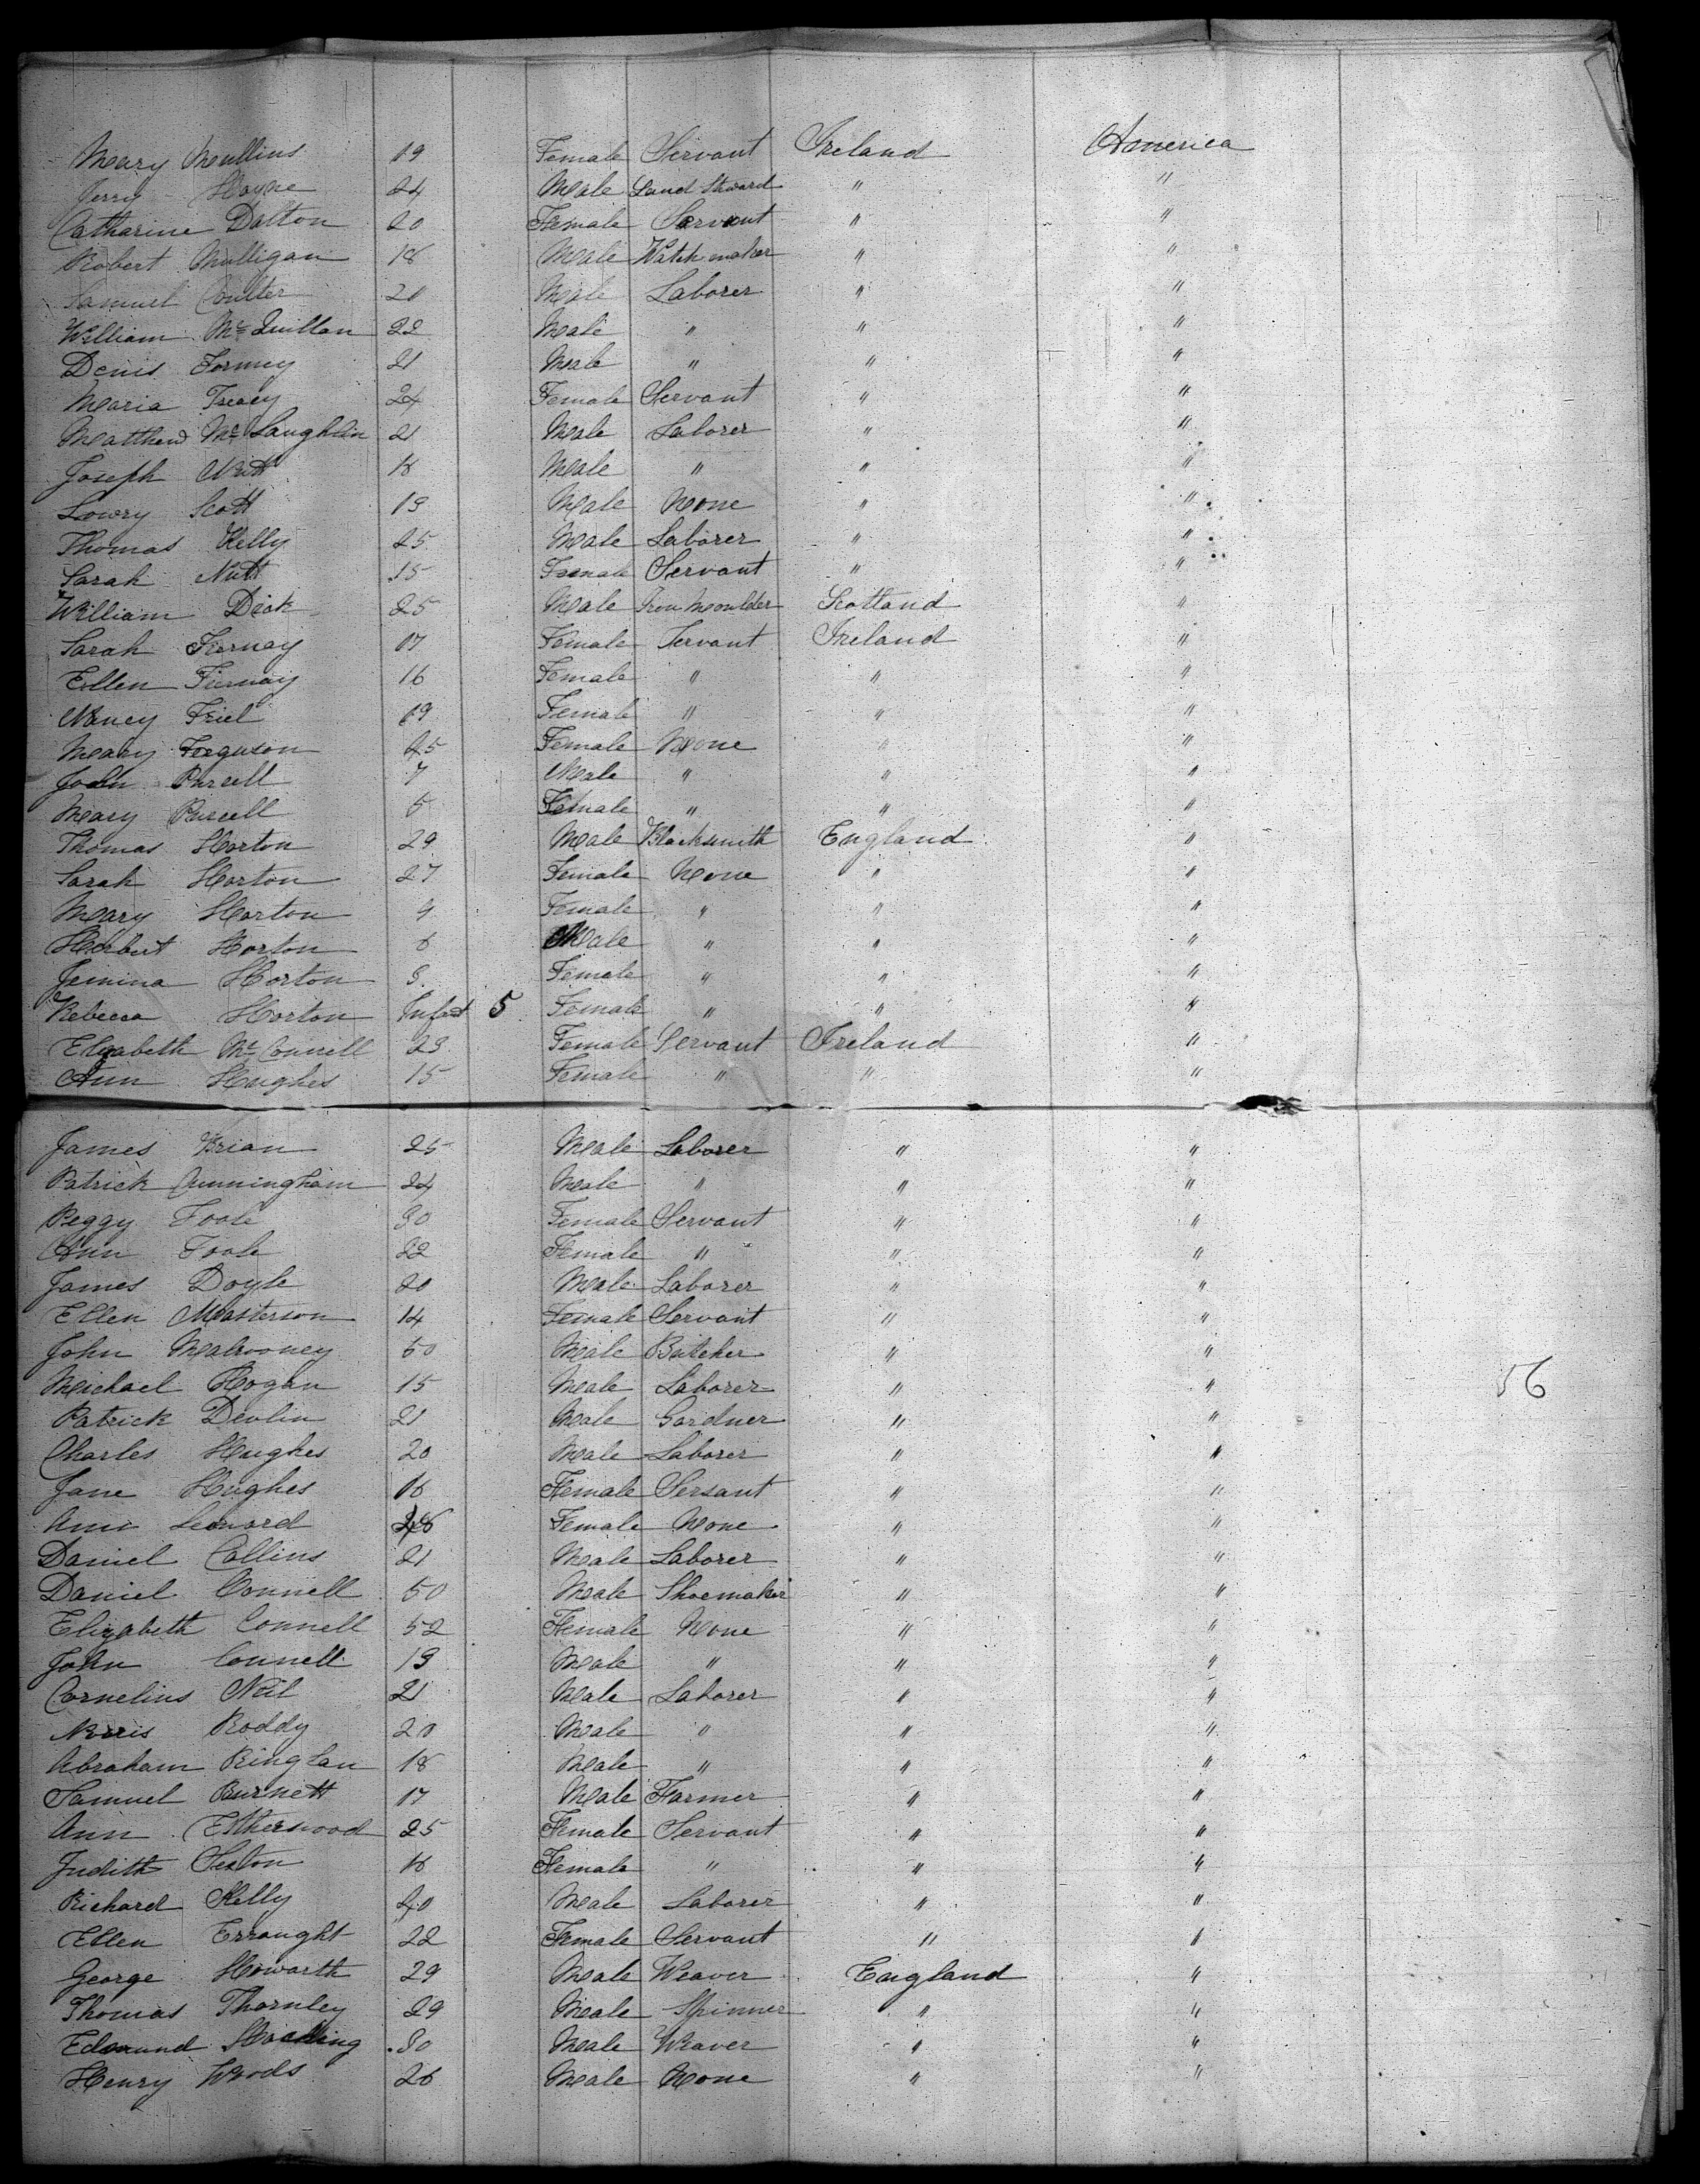 Mary Mullins 19 Female Servant Ireland America
Jerry Hayne 24 Male Land Steward " "
Catharine Dalton 20 Female Servant " "
Robert Mulligan 18 Male Watch maker " "
Samuel Coulter 20 Male Laborer " "
William McQuillan 22 Male " " "
Denis 21 Male " " "
Maria Treacy 24 Female Servant " "
Matthew McLaughlin 21 Male Laborer " "
Joseph 18 Male " " "
Lowry Scott 13 Male None " "
Thomas Kelly 25 Male Laborer " "
Sarah Nutt 15 Female Servant " "
William Dick 25 Male Iron Moulder Scotland "
Sarah Tiernay 17 Female Servant Ireland "
Ellen Tiernay 16 Female " " "
Nancy Friel 19 Female " " "
Mary Ferguson 25 Female None " "
John Purcell 7 Male " " "
Mary Purcell 5 Female " " "
Thomas Horton 29 Male Blacksmith England "
Sarah Horton 27 Female None " "
Mary Horton 9 Female " " "
Herbert Horton 6 Male " " "
Jemina Horton 3 Female " " "
Rebecca Horton Infant 5 Female " " "
Elizabeth McConnell 23 Female Servant Ireland "
Ann Hughes 15 Female " " "
James Brian 25 Male Laborer " "
Patrick Cunningham 24 Male " " "
Peggy Toole 30 Female Servant " "
Ann Toole 22 Female " " "
James Doyle 20 Male Laborer " "
Ellen Masterson 14 Female Servant " "
John Malrooney 50 Male Butcher " "
Michael Hogan 15 Male Laborer " " 56
Patrick Devlin 21 Male Gardner " "
Charles Hughes 20 Male Laborer " "
Jane Hughes 16 Female Servant " "
Ann Leonard Female None " "
Daniel Collins 21 Male Laborer " "
Daniel Connell 50 Male Shoemaker " "
Elizabeth Connell 52 Female None " "
John Connell 13 Male " " "
Cornelius Neil 21 Male Laborer " "
Roddy 20 Male " " "
Abraham Ringlan 18 Male " " "
Samuel Burnett 17 Male Farmer " "
Ann Etherwood 25 Female Servant " "
Judith Sexton 16 Female " " "
Richard Kelly 40 Male Laborer " "
Ellen Erraught 22 Female Servant " "
George Howarth 29 Male Weaver England "
Thomas Thornley 29 Male Spinner " "
Edmund 30 Male Weaver " "
Henry Woods 26 Male None " "